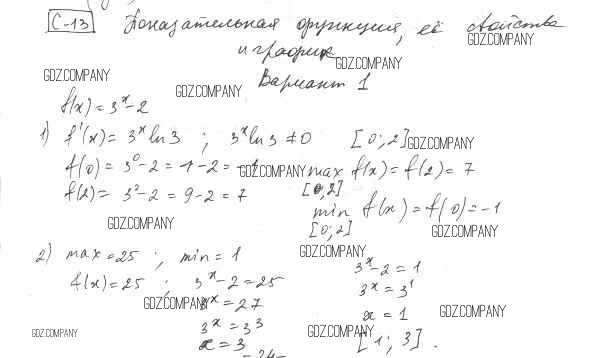 С-13 Показательная функция, её свойства
GDZ.COMPANY
и график
GDZ.COMPANY
GDZ.COMPANY
Вариант 1
GDZ.COMPANY
f(x) = 3^x - 2
1) f'(x) = 3^x ln 3 ; 3^x ln 3 ≠ 0 [0; 2] GDZ.COMPANY
f(0) = 3^0 - 2 = 1 - 2 = -1 GDZ.COMPANY max f(x) = f(2) = 7
f(2) = 3^2 - 2 = 9 - 2 = 7 [0; 2]
min f(x) = f(0) = -1
GDZ.COMPANY [0; 2] GDZ.COMPANY
2) max = 25 ; min = 1 GDZ.COMPANY
f(x) = 25 ; 3^x - 2 = 25 3^x - 2 = 1
3^x = 27 3^x = 3^1
GDZ.COMPANY
x = 1 GDZ.COMPANY
3^x = 3^3
GDZ.COMPANY GDZ.COMPANY
x = 3 [1; 3].